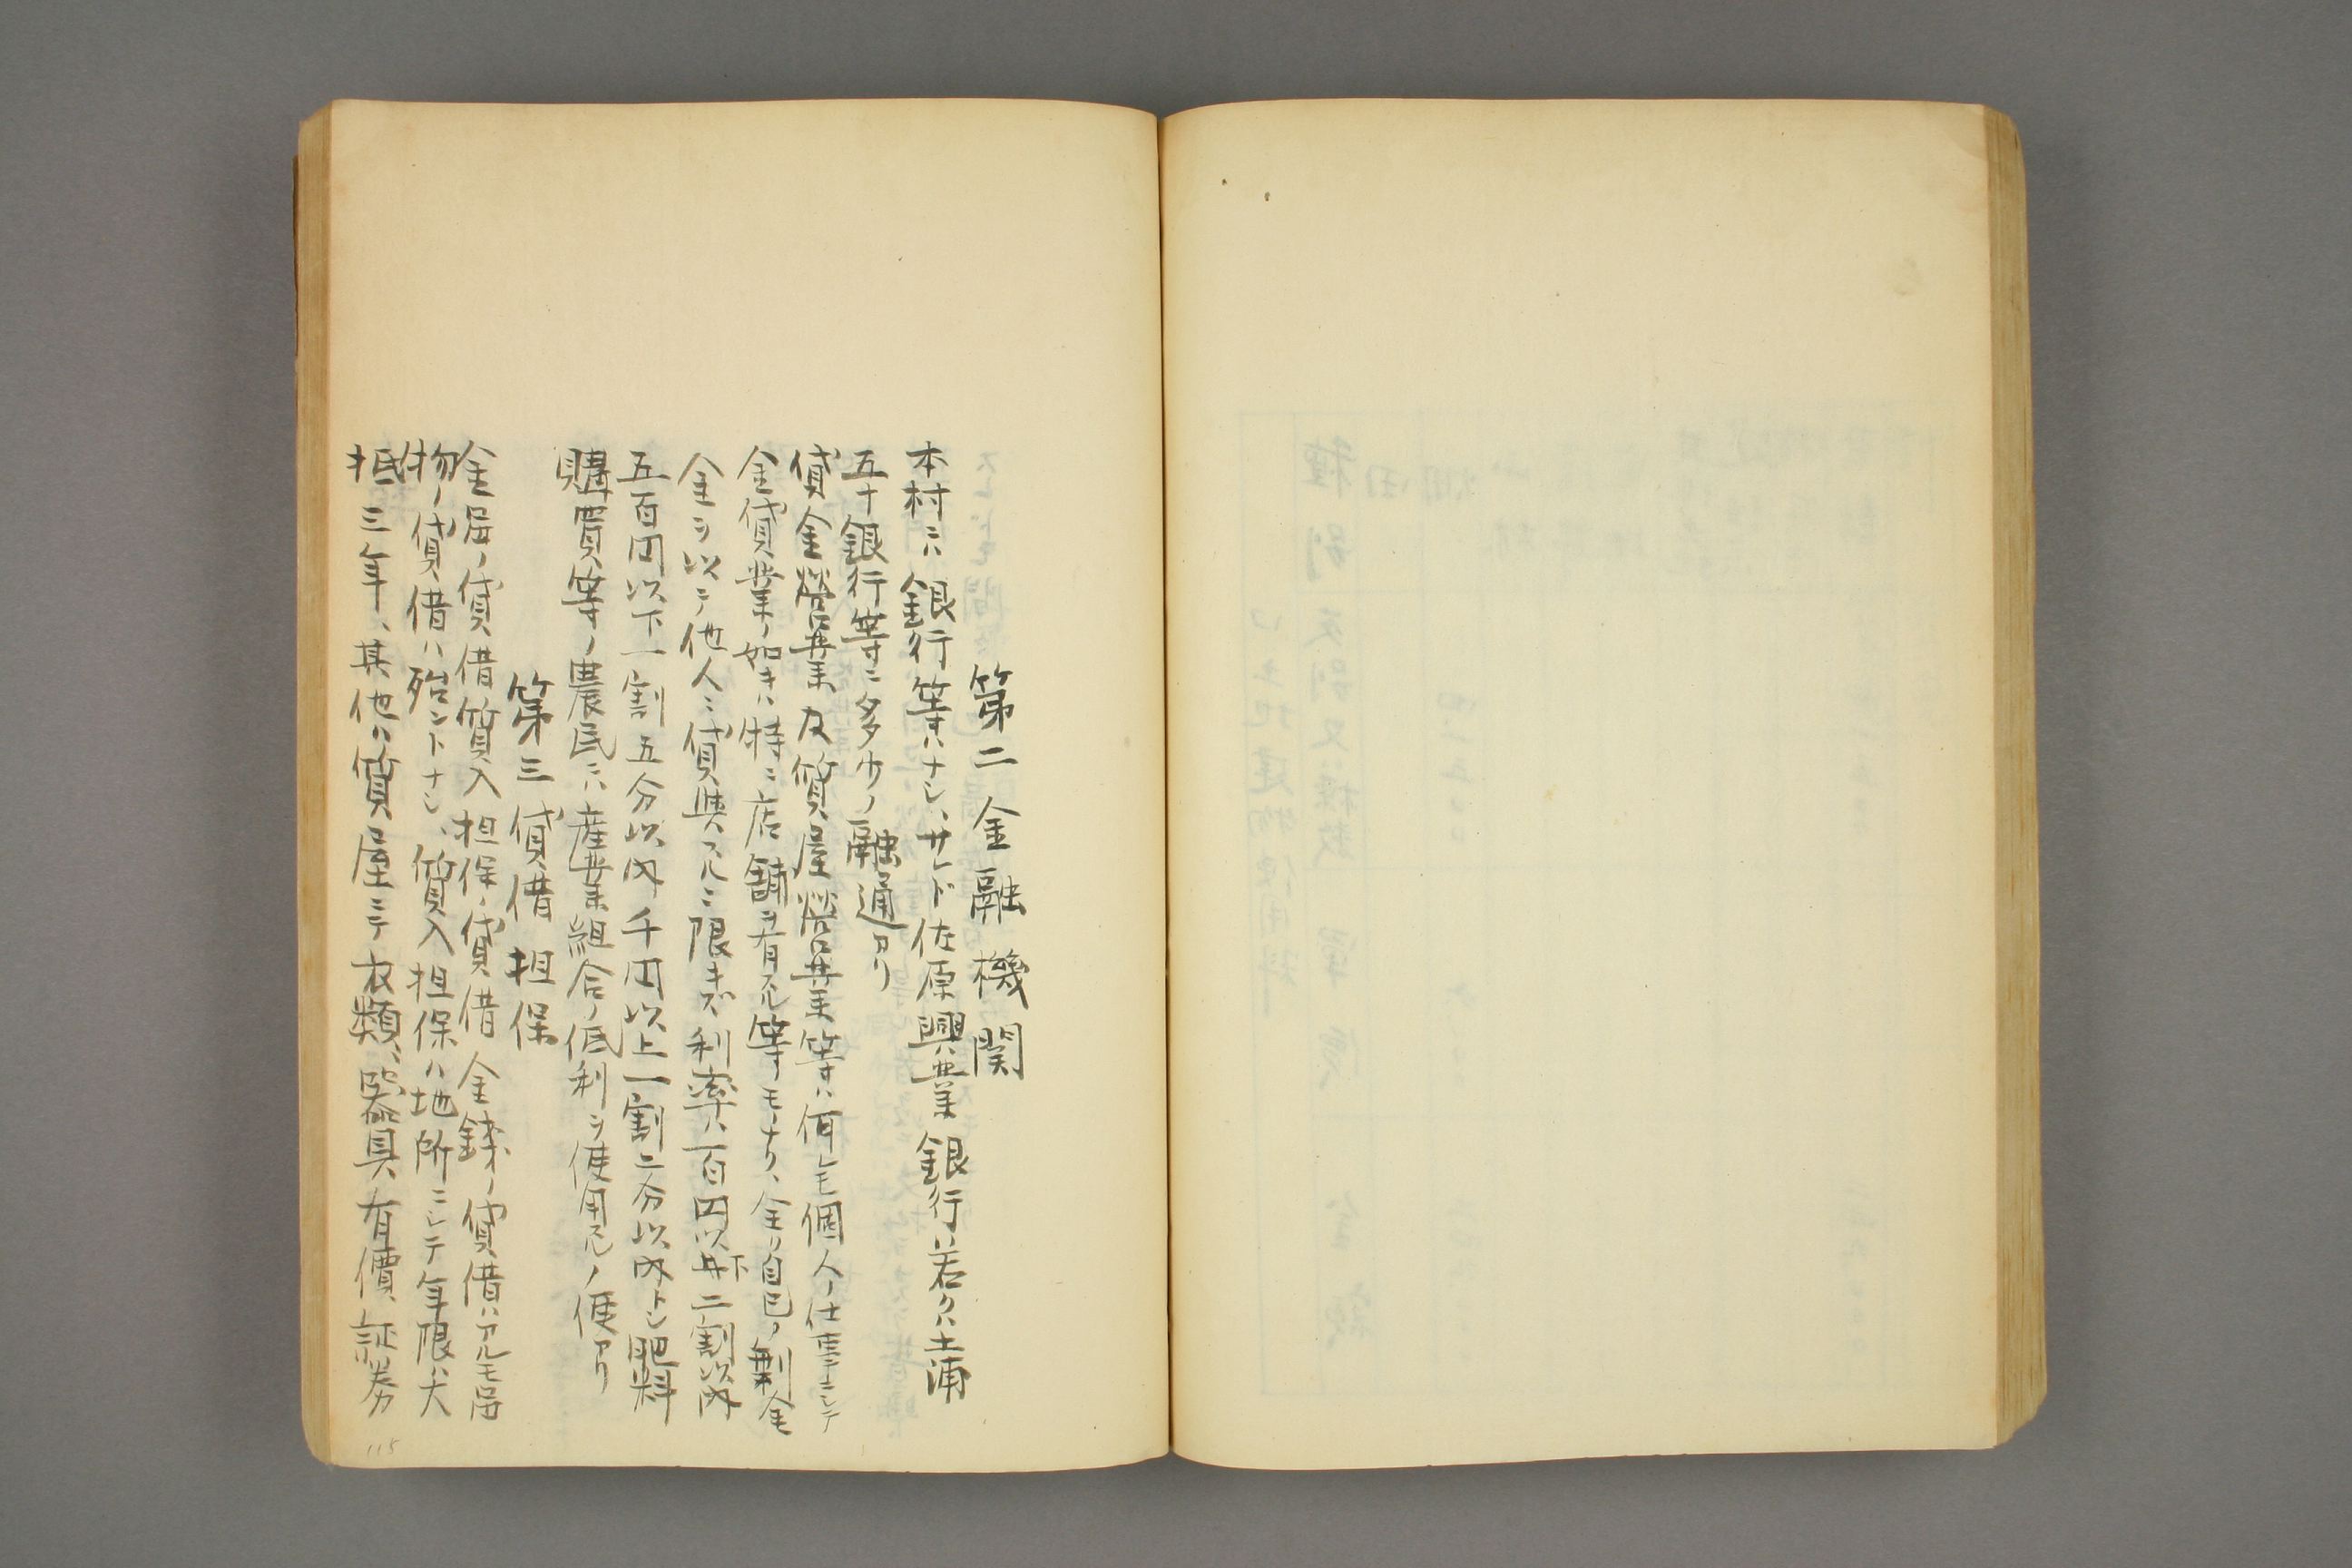 第二 金融機関
本村ニハ銀行等ハナシ、サレド佐原興業銀行、若クハ土浦
五十銀行等ニ多少ノ融通アリ
貸金営業及質屋営業等ハ何レモ個人ノ仕事ニシテ
金貸業ノ如キハ特ニ店舗ヲ有スル等ノモノナク、全ク自己ノ剰金
金ヲ以テ他人ニ貸與スルニ限キズ、利率ハ百円以下二割以内
五百円以下一割五分以内千円以上一割二分以内トシ肥料
購買等ノ農民ニハ産業組合ノ低利ヲ使用スルノ便アリ
第三 貸借 担保
金品ノ貸借質入担保ノ貸借 金銭ノ貸借ハアルモ品
物ノ貸借ハ殆ントナシ、質入担保ハ地所ニシテ年限ハ大
抵三年、其他ハ質屋ニテ衣類、器具、有價証券
115